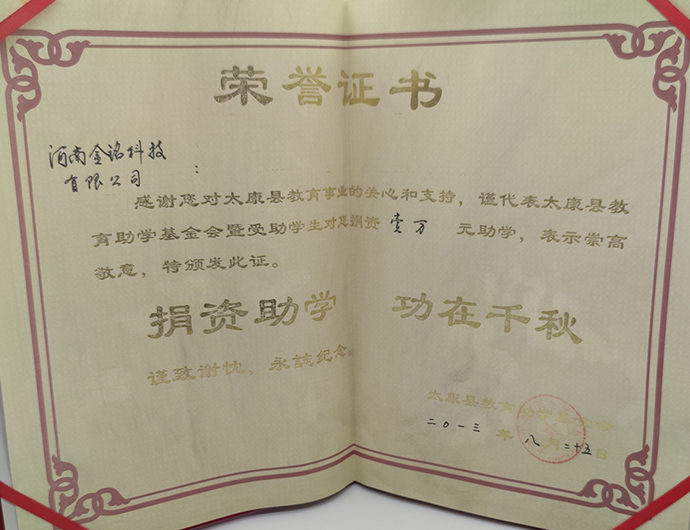 荣誉证书
河南金铭科技
有限公司：
感谢您对太康县教育事业的关心和支持，谨代表太康县教
育助学基金会暨受助学生对您捐资壹万元助学，表示崇高
敬意，特颁发此证。
捐资助学 功在千秋
谨致谢忱，永誌纪念。
太康县教育助学基金会
二〇一三年八月二十五日